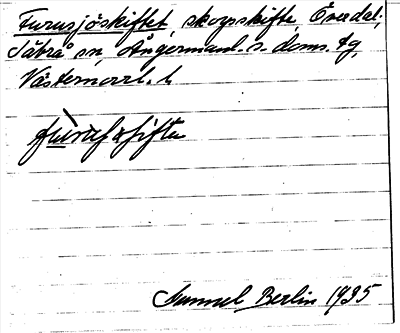 Furusjöskiftet, skogsskifte, Överdal;
Säbrå sn, Ångermanl. s. doms. tg,
Västernorrl. l.
Samuel Berlin 1935